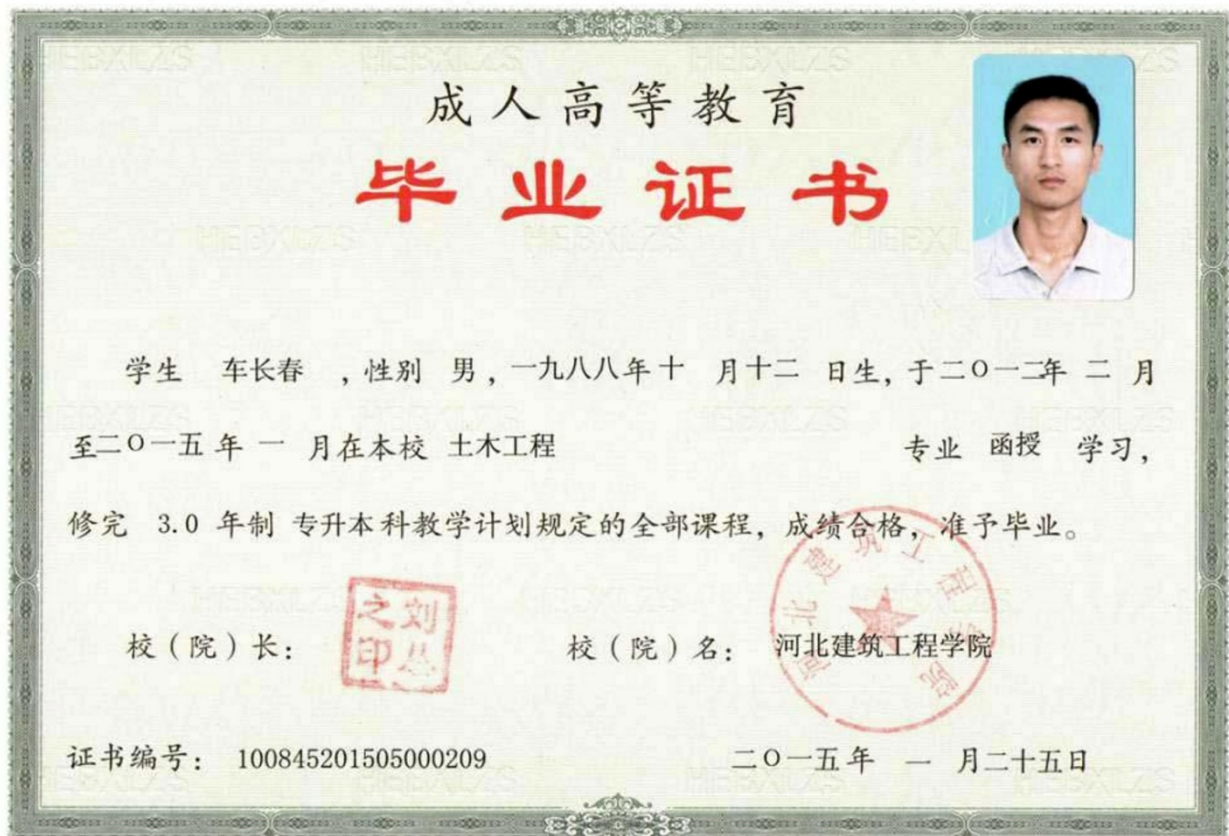 成人高等教育
毕业证书
学生 车长春 ，性别 男，一九八八年十 月十二 日生，于二〇一二年 二 月
至二〇一五年 一 月在本校 土木工程 专业 函授 学习，
修完 3.0 年制 专升本科教学计划规定的全部课程，成绩合格，准予毕业。
校（院）长：
刘丛之印
校（院）名： 河北建筑工程学院
河北建筑工程学院
证书编号： 100845201505000209
二〇一五年 一 月二十五日
HEBXLZS